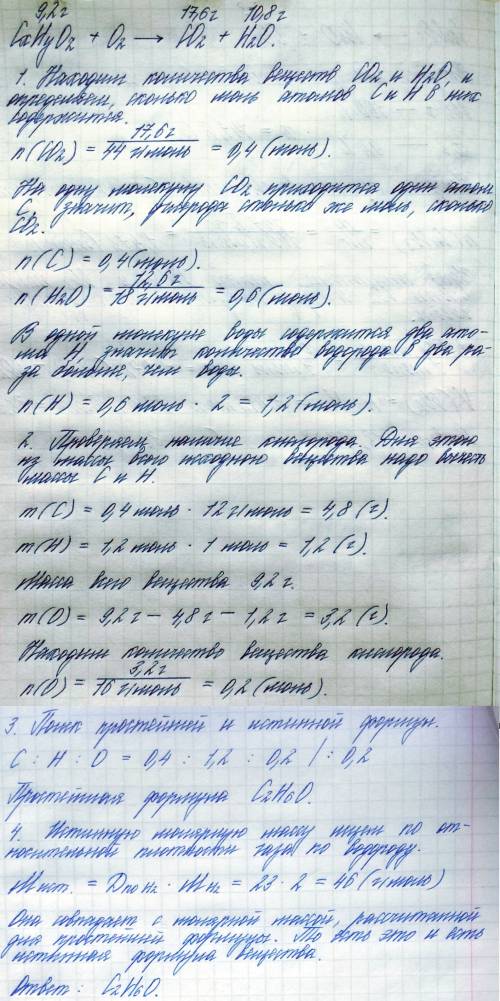 9,2г 17,6г 10,8г
CxHyOz + O2 → CO2 + H2O.
1. Находим количества веществ CO2 и H2O, и
определяем, сколько моль атомов C и H в них
содержится.
n(CO2) = 17,6г / 44 г/моль = 0,4 (моль).
На одну молекулу CO2 приходится один атом
C, значит, углерода столько же моль, сколько
CO2.
n(C) = 0,4 (моль).
n(H2O) = г / 18 г/моль = 0,6 (моль).
В одной молекуле воды содержится два ато-
ма H, значит количество водорода в два ра-
за больше, чем воды.
n(H) = 0,6 моль · 2 = 1,2 (моль).
2. Проверяем наличие кислорода. Для этого
из массы всего исходного вещества надо вычесть
массы C и H.
m(C) = 0,4 моль · 12 г/моль = 4,8 (г).
m(H) = 1,2 моль · 1 моль = 1,2 (г).
Масса всего вещества 9,2 г.
m(O) = 9,2 г − 4,8 г − 1,2 г = 3,2 (г).
Находим количество вещества кислорода.
n(O) = 3,2г / 16 г/моль = 0,2 (моль).
3. Поиск простейшей и истинной формул.
C : H : O = 0,4 : 1,2 : 0,2 / : 0,2
Простейшая формула C2H6O.
4. Истинную молярную массу ищем по от-
носительной плотности газа по водороду.
Mист. = Dпо H2 · MH2 = 23 · 2 = 46 (г/моль)
Она совпадает с молярной массой, рассчитанной
для простейшей формулы. То есть это и есть
истинная формула вещества.
Ответ: C2H6O.